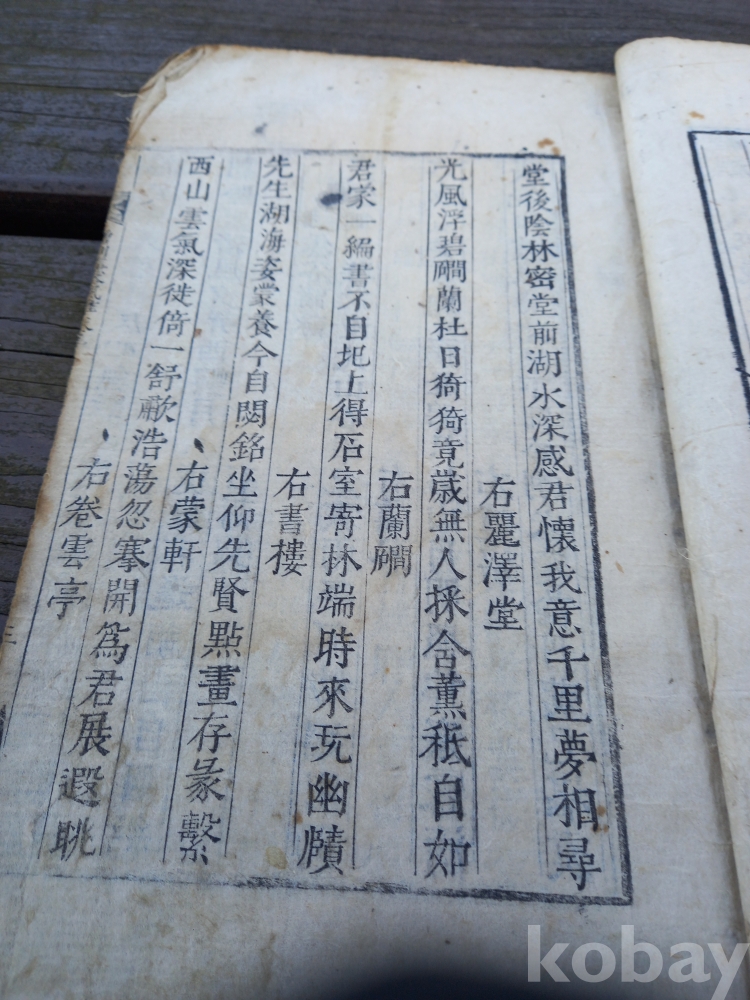 堂後陰林密堂前湖水深感君懷我意千里夢相尋
右麗澤堂
光風浮碧磵蘭杜日猗猗竟歲無人採含薰秪自如
右蘭磵
君家一編書不自圯上得石室寄林端時來玩幽賾
右書樓
先生湖海姿蒙養今自閟銘坐仰先賢點畫存彖繫
右蒙軒
西山雲氣深徙倚一舒歗浩蕩忽搴開為君展遐眺
右卷雲亭
kobay